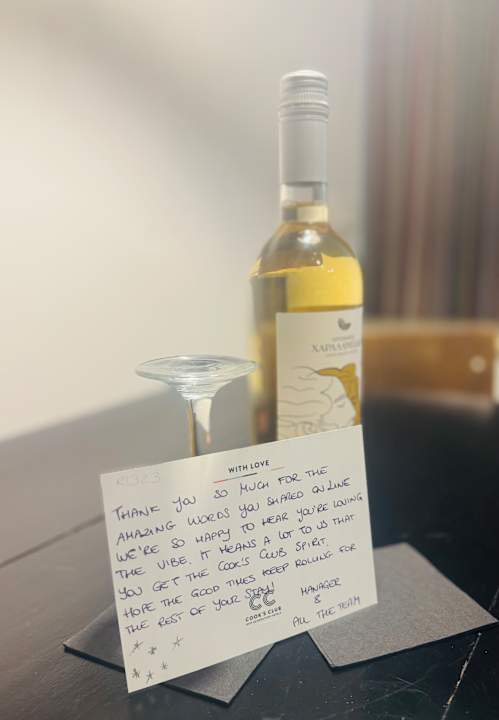 WITH LOVE
THANK YOU SO MUCH FOR THE
AMAZING WORDS YOU SHARED ONLINE
WE'RE SO HAPPY TO HEAR YOU'RE LOVING
THE VIBE. IT MEANS A LOT TO US THAT
YOU GET THE COOK'S CLUB SPIRIT.
HOPE THE GOOD TIMES KEEP ROLLING FOR
THE REST OF YOUR STAY!
CC
COOK'S CLUB
MANAGER
&
ALL THE TEAM